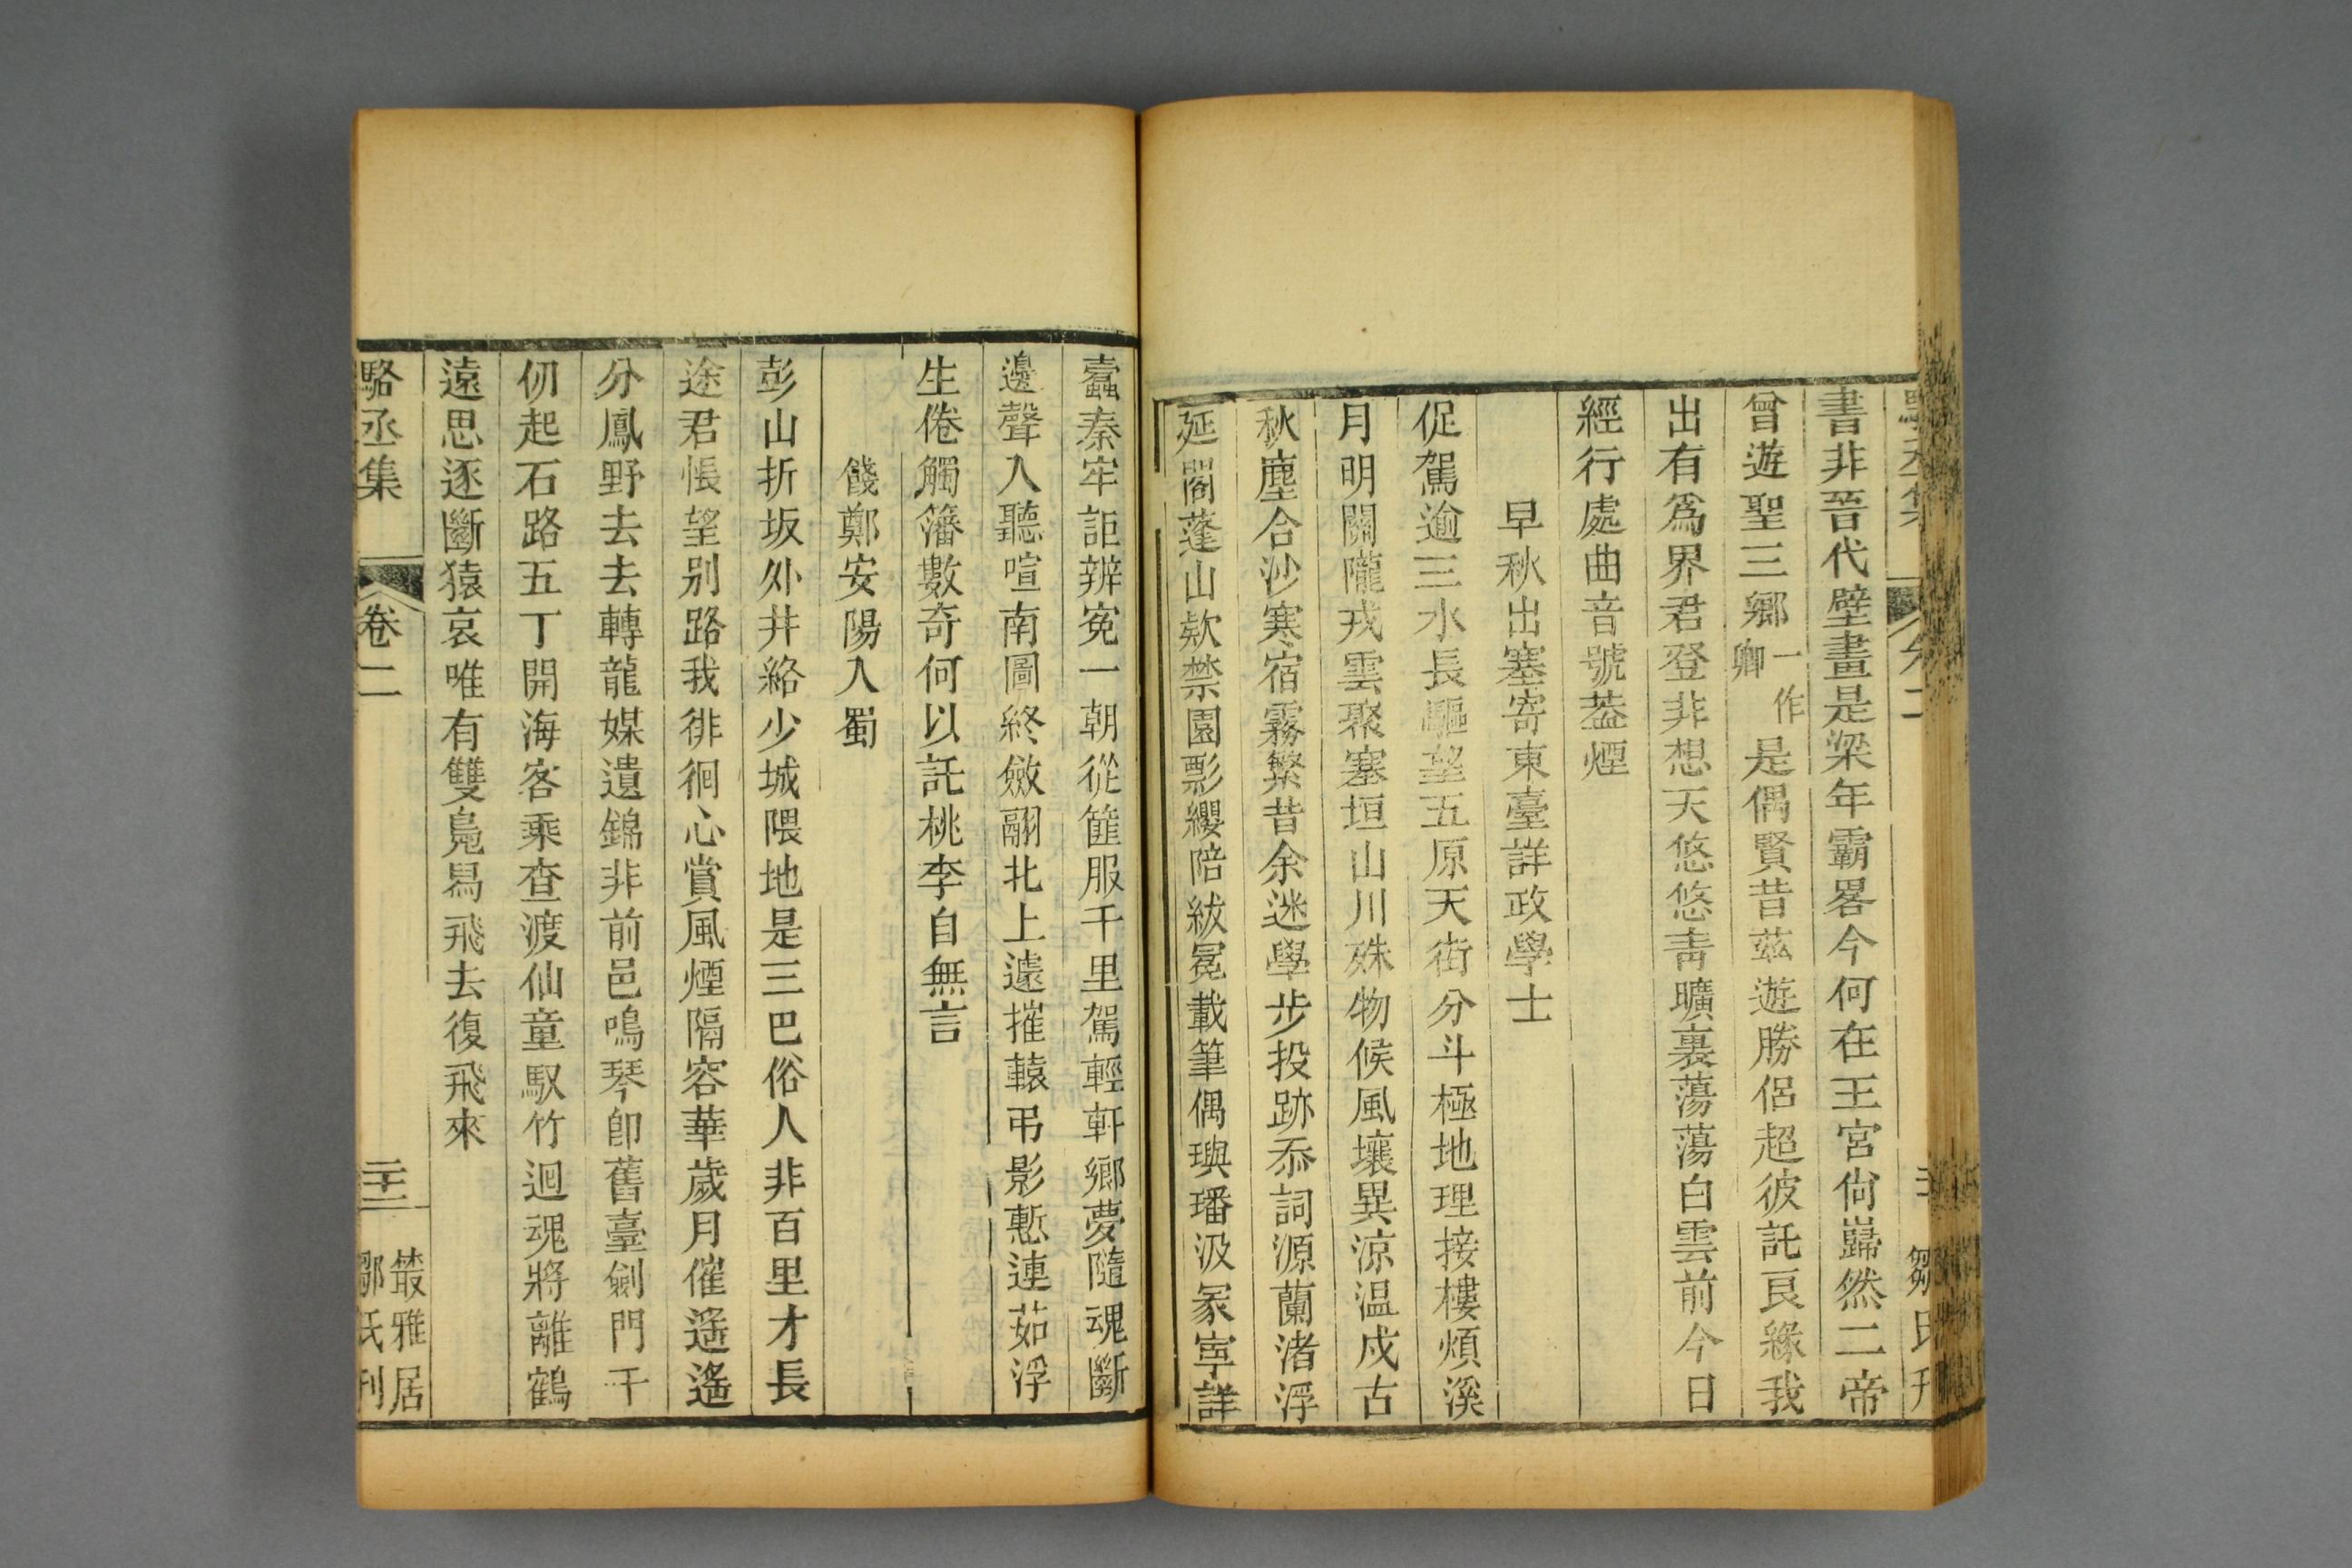 書非晉代壁畫是梁年霸畧今何在王宮尙巋然二帝
曾遊聖三鄉一作卿是偶賢昔茲遊勝侶超彼託良緣我
出有爲界君登非想天悠悠靑曠裏蕩蕩白雲前今日
經行處曲音號葢煙
早秋出塞寄東臺詳政學士
促駕逾三水長驅望五原天街分斗極地理接樓煩溪
月明關隴戎雲聚塞垣山川殊物候風壤異涼温戍古
秋塵合沙寒宿霧繁昔余迷學步投跡忝詞源蘭渚浮
延閣蓬山欵禁園彯纓陪紱冕載筆偶璵璠汲冢寧詳
蠹秦牢詎辨寃一朝從篚服千里駕輕軒鄉夢隨魂斷
邊聲入聽喧南圖終斂翮北上遽摧轅弔影慙連茹浮
生倦觸籓數奇何以託桃李自無言
餞鄭安陽入蜀
彭山折坂外井絡少城隈地是三巴俗人非百里才長
途君悵望别路我徘徊心賞風煙隔容華歲月催遙遙
分鳳野去去轉龍媒遺錦非前邑鳴琴卽舊臺劍門千
仞起石路五丁開海客乘查渡仙童馭竹迴魂將離鶴
遠思逐斷猿哀唯有雙鳧舄飛去復飛來
駱丞集
卷二
二十一
叢雅居
鄒氏刊